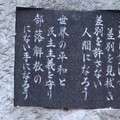 差別を見抜き
差別を許さない
人間になろう
世界の平和と
民主主義を守り
部落解放の
にない手になろう